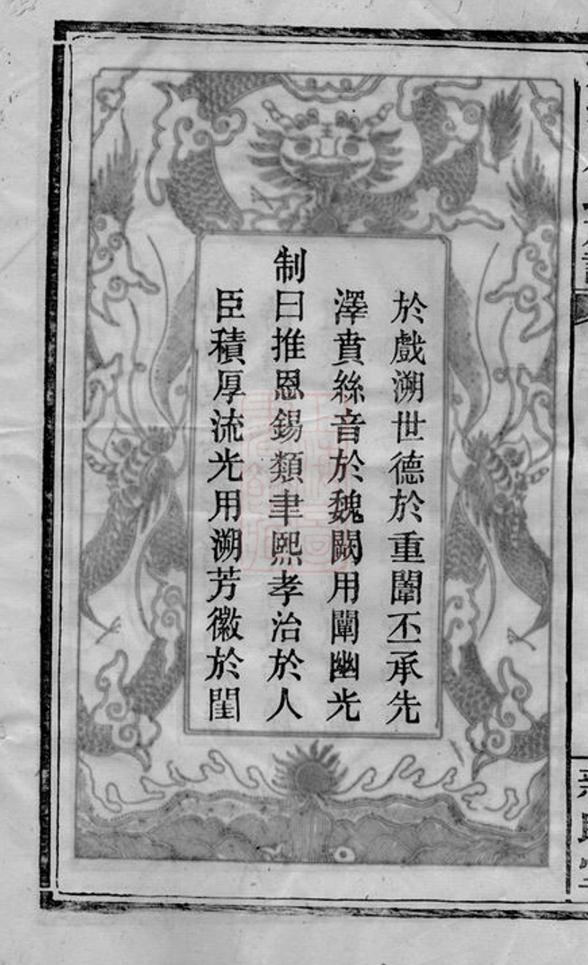 於戲溯世德於重闈丕承先
澤賁絲音於魏闕用闡幽光
制曰推恩錫類聿熙孝治於人
臣積厚流光用溯芳徽於閨